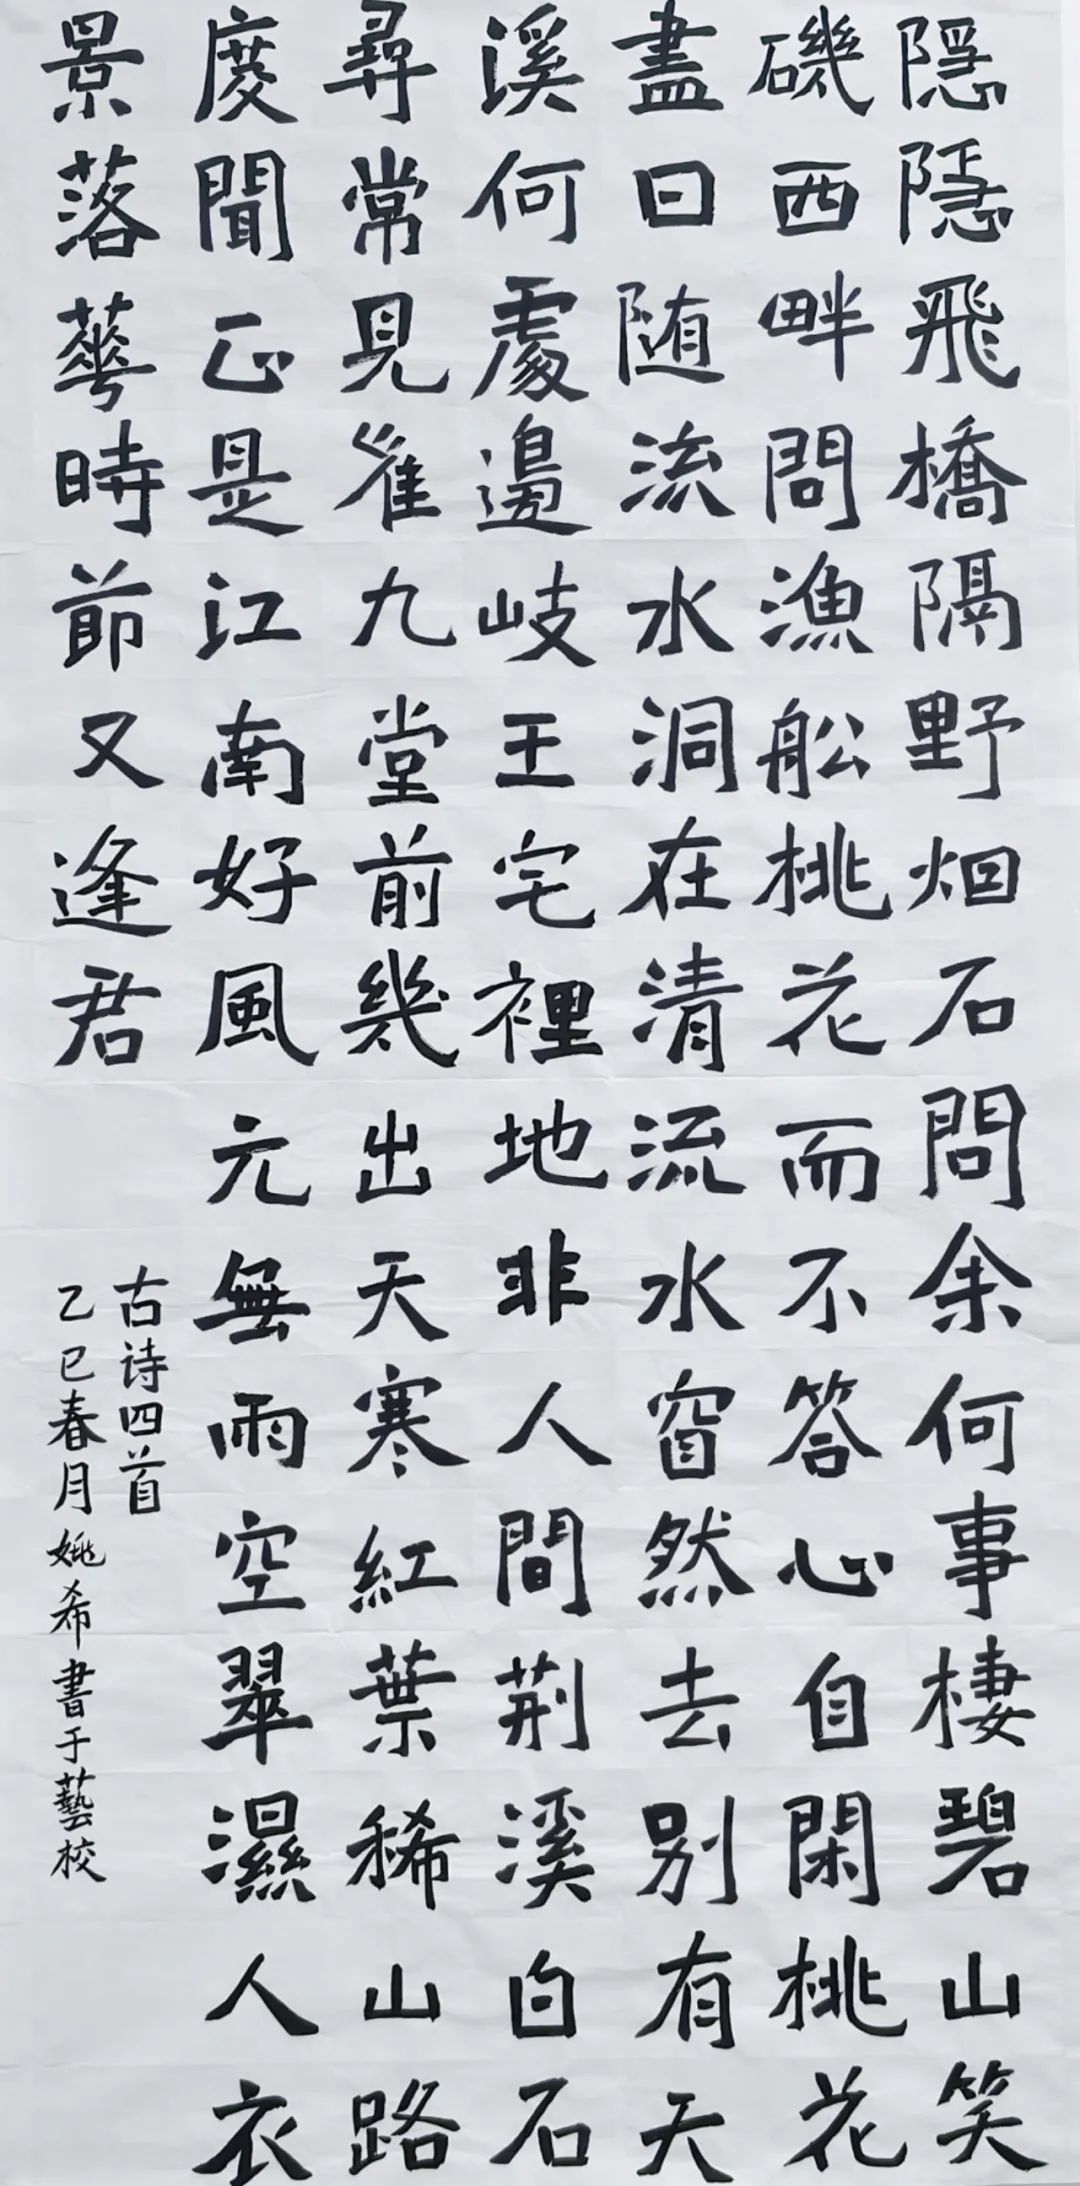 隱隱飛橋隔野烟石
磯西畔問漁船桃花
盡日随流水洞在清
溪何處邊岐王宅裡
尋常見崔九堂前幾
度聞正是江南好風
景落華時節又逢君
問余何事棲碧山笑
而不答心自閑桃花
流水窅然去别有天
地非人間荆溪白石
出天寒紅葉稀山路
元無雨空翠濕人衣
古诗四首
乙巳春月姚希書于藝校